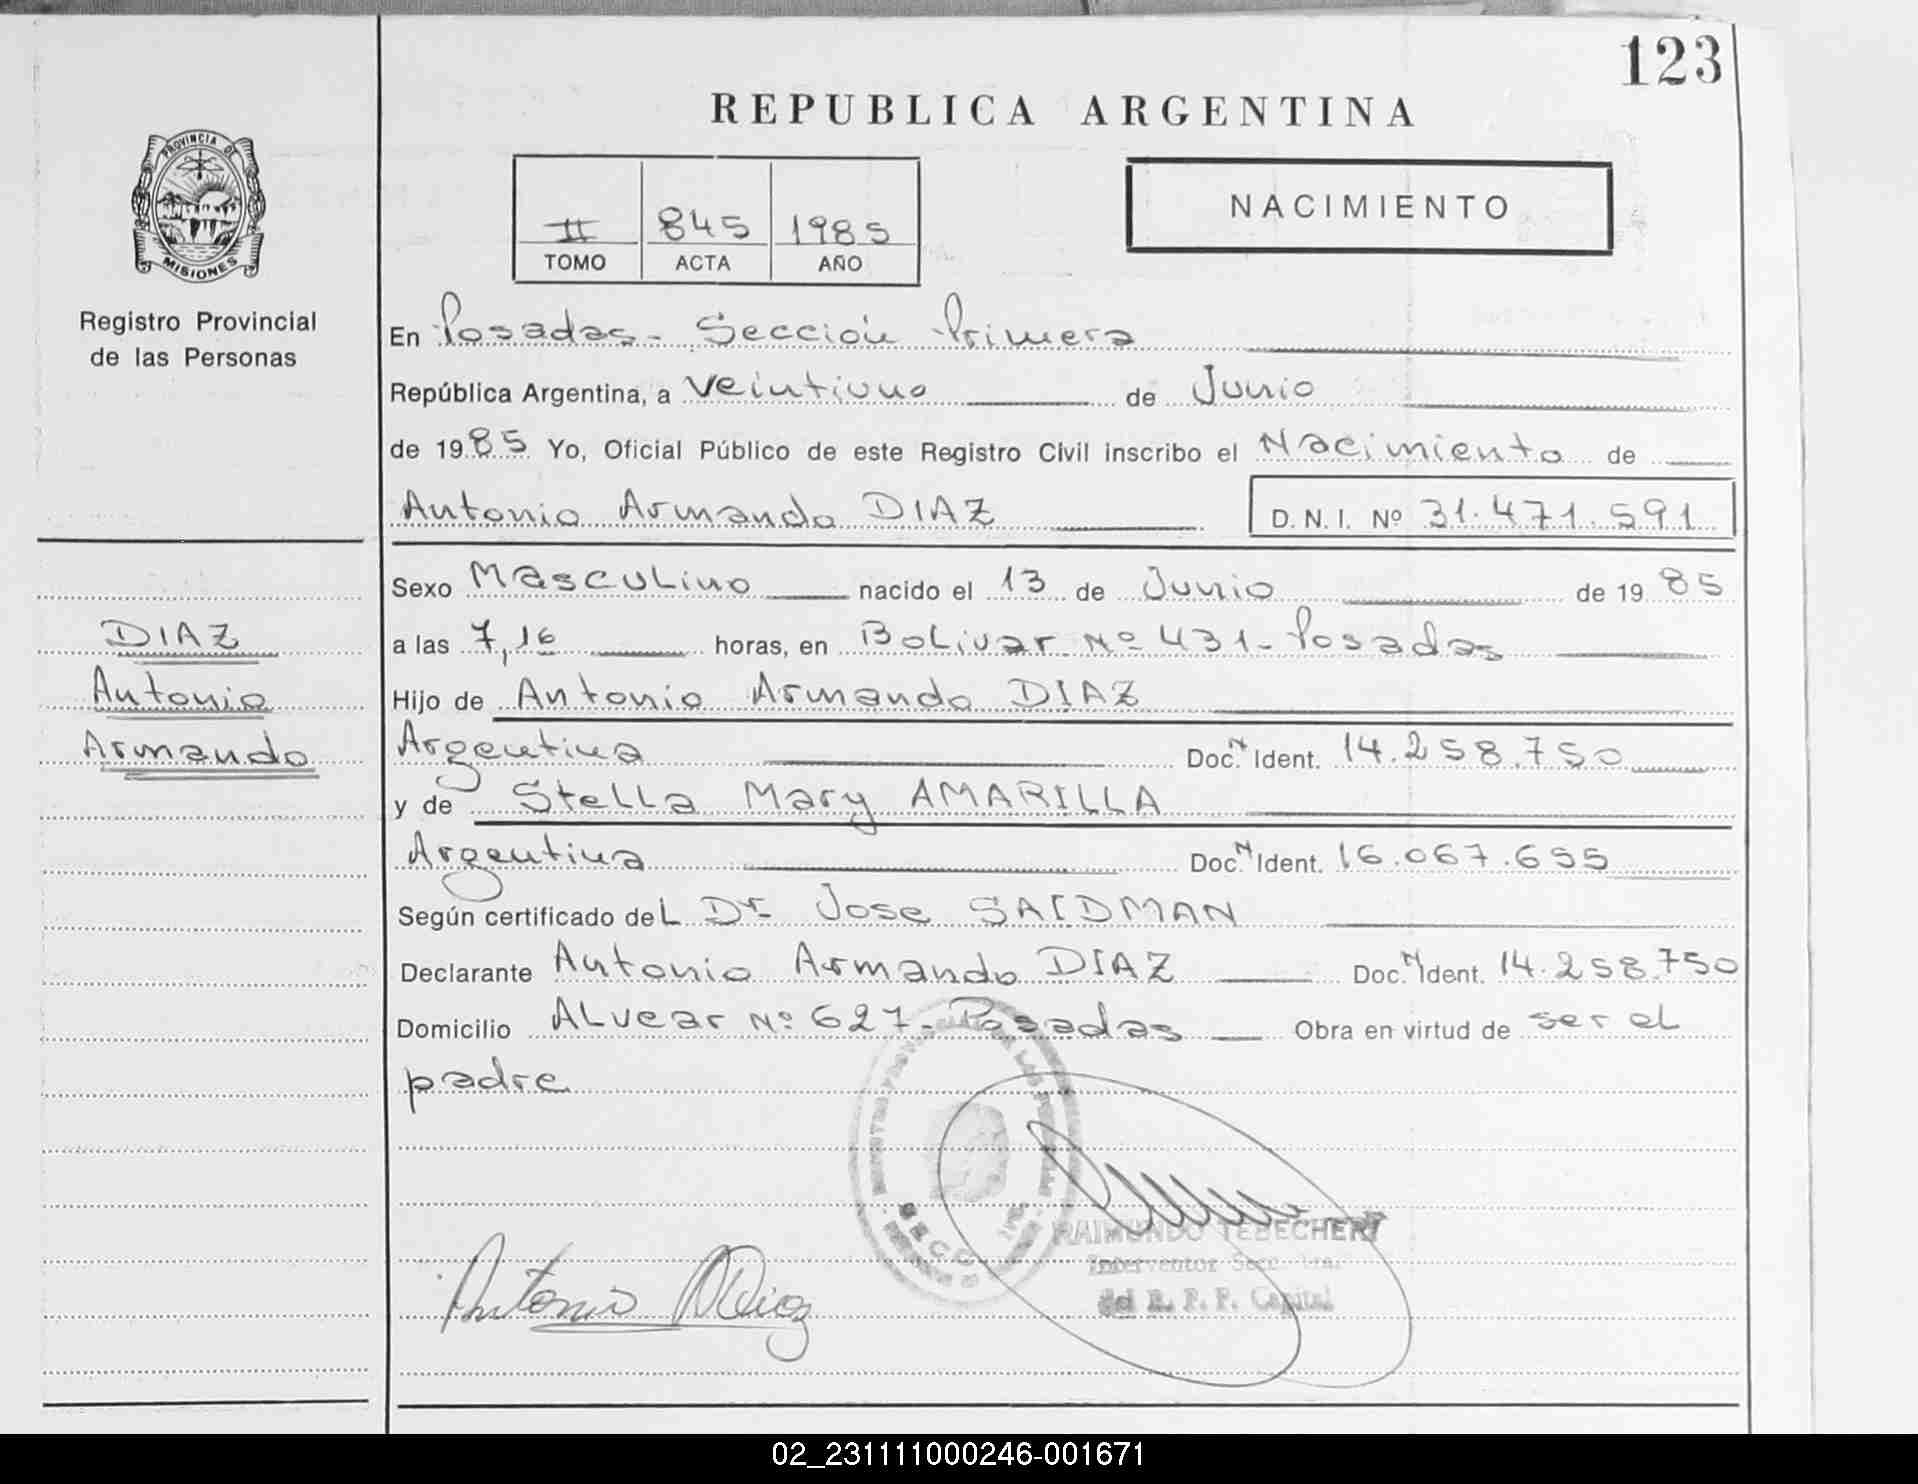 123
REPUBLICA ARGENTINA
PROVINCIA DE
MISIONES
Registro Provincial
de las Personas
II 845 1985
TOMO ACTA AÑO
NACIMIENTO
En Posadas - Sección Primera
República Argentina, a veintiuno de Junio
de 1985 Yo, Oficial Público de este Registro Civil inscribo el Nacimiento de
Antonio Armando DIAZ D. N. I. Nº 31.471.591
Sexo Masculino nacido el 13 de Junio de 1985
a las 7,16 horas, en Bolivar Nº 431 - Posadas
Hijo de Antonio Armando DIAZ
Argentina Doc. N Ident. 14.258.750
y de Stella Mary AMARILLA
Argentina Doc. N Ident. 16.067.655
Según certificado del Dr. Jose SAIDMAN
Declarante Antonio Armando DIAZ Doc. N Ident. 14.258.750
Domicilio Alvear Nº 627 - Posadas Obra en virtud de ser el
padre
DIAZ
Antonio
Armando
SECC
RAIMUNDO TEBECHERI
Interventor
del R. P. P. Capital
Antonio A Diaz
02_231111000246-001671